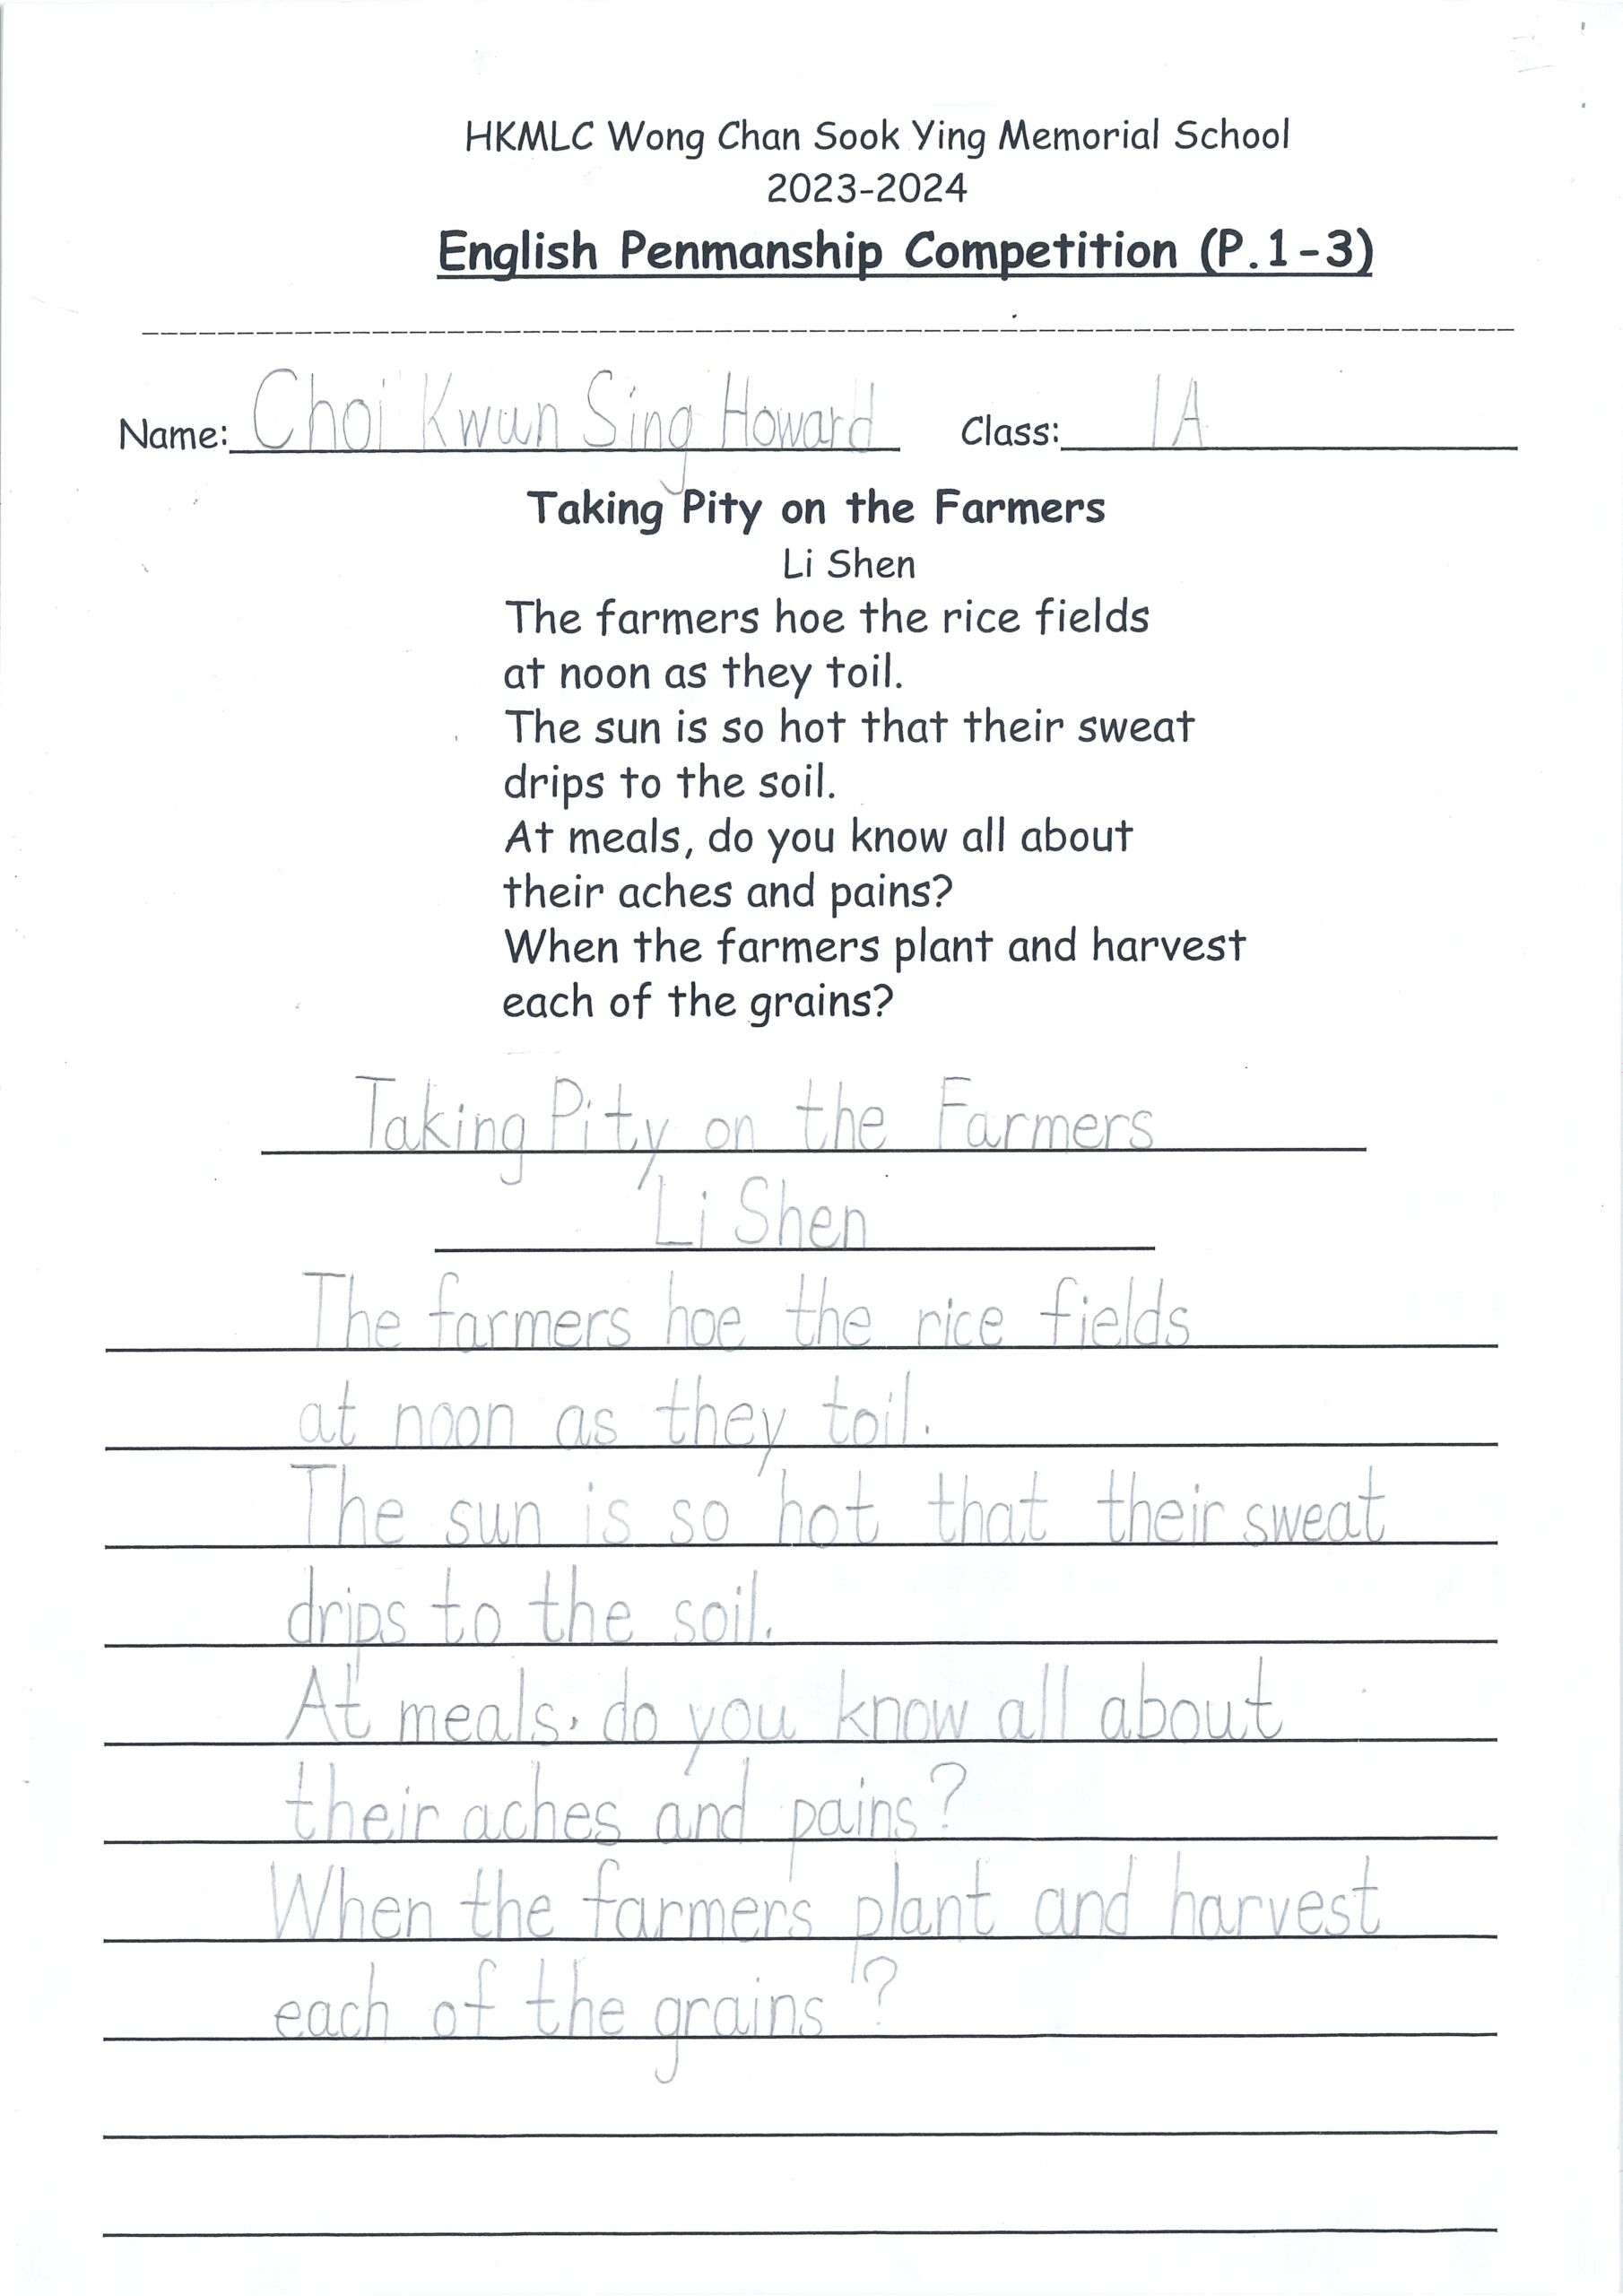 HKMLC Wong Chan Sook Ying Memorial School
2023-2024
English Penmanship Competition (P.1-3)
Name: Choi Kwun Sing Howard Class: 1A
Taking Pity on the Farmers
Li Shen
The farmers hoe the rice fields
at noon as they toil.
The sun is so hot that their sweat
drips to the soil.
At meals, do you know all about
their aches and pains?
When the farmers plant and harvest
each of the grains?
Taking Pity on the Farmers
Li Shen
The farmers hoe the rice fields
at noon as they toil.
The sun is so hot that their sweat
drips to the soil.
At meals, do you know all about
their aches and pains?
When the farmers plant and harvest
each of the grains?